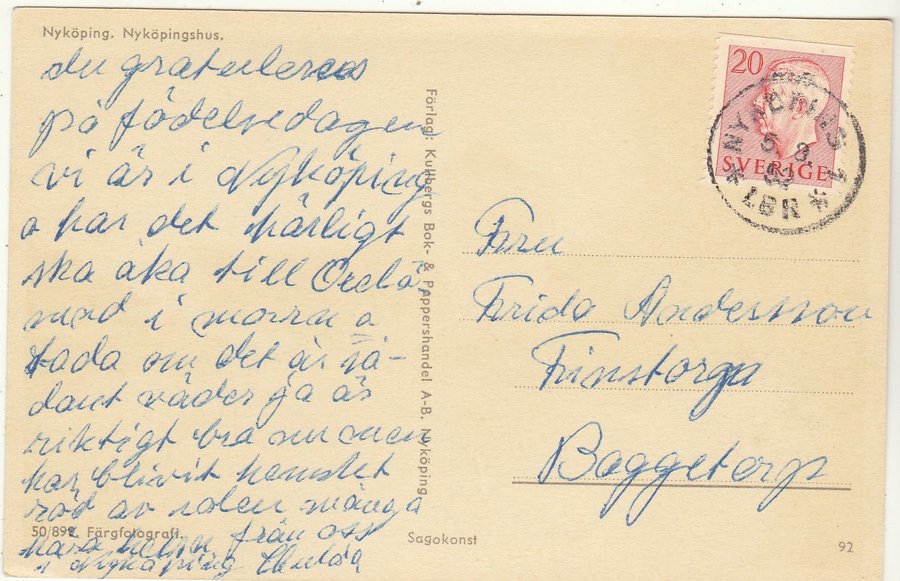 Nyköping. Nyköpingshus.
du gratuleras
på födelsedagen
vi är i Nyköping
o har det härligt
ska åka till Oxelö-
sund i morrn o
bada om det är så-
dant väder ja är
riktigt bra nu men
har blivit hemskt
röd av solen många
kära från oss
i Nyköping
Förlag: Kullbergs Bok- & Pappershandel A-B. Nyköping
20
SVERIGE
NYKÖPING 1
5. 8.
LBR
Fru
Frida Andersson
Finstorga
Baggetorp
50/899. Färgfotografi.
Sagokonst
92